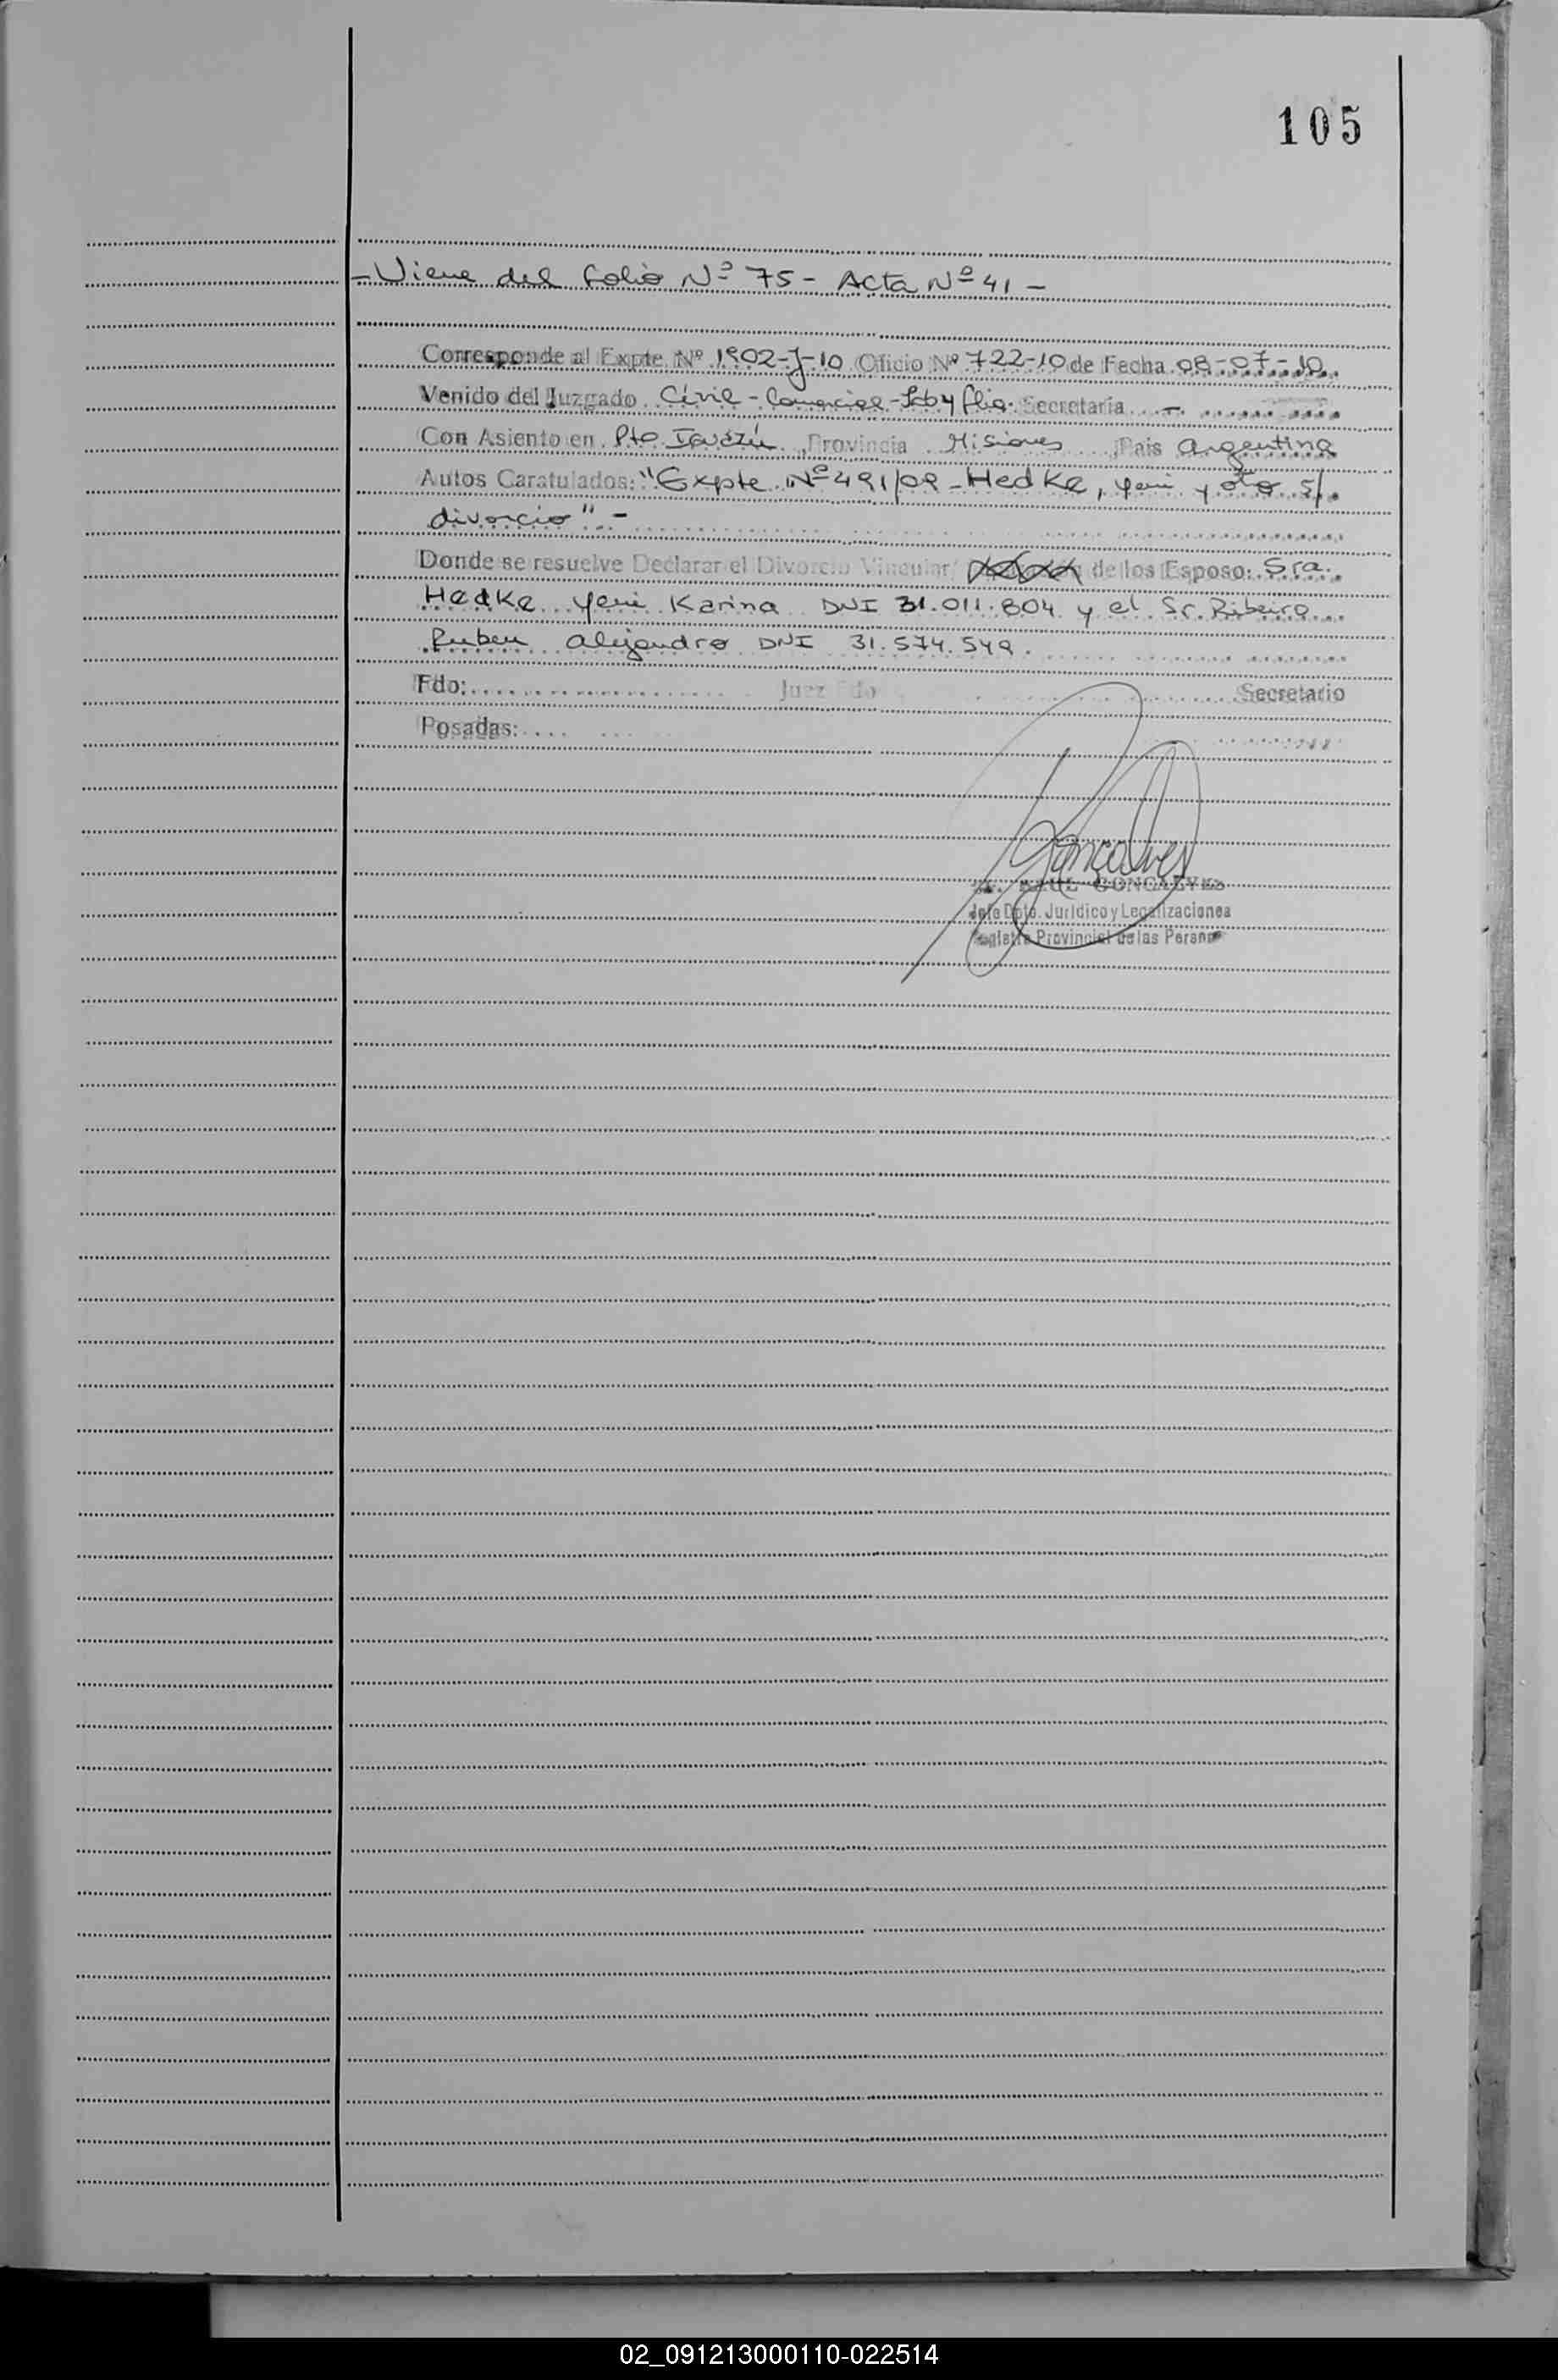 105
- Viene del folio Nº 75 - Acta Nº 41 -
Corresponde al Expte. Nº 1902-J-10 Oficio Nº 722-10 de Fecha 08-07-10
Venido del Juzgado Civil - Comercial - Lab y flia. Secretaría -
Con Asiento en Pto Iguazú, Provincia Misiones País Argentina
Autos Caratulados: "Expte. Nº 491/09 - Hedke, Yeni y otro s/
divorcio" -
Donde se resuelve Declarar el Divorcio Vincular/ de los Esposo: Sra.
Hedke Yeni Karina DNI 31.011.804 y el Sr. Ribeiro
Ruben Alejandro DNI 31.574.549.
Fdo: Juez Fdo Secretario
Posadas:
Gonçalves
RAUL GONCALVES
Jefe Dpto. Jurídico y Legalizaciones
Registro Provincial de las Personas
02_091213000110-022514